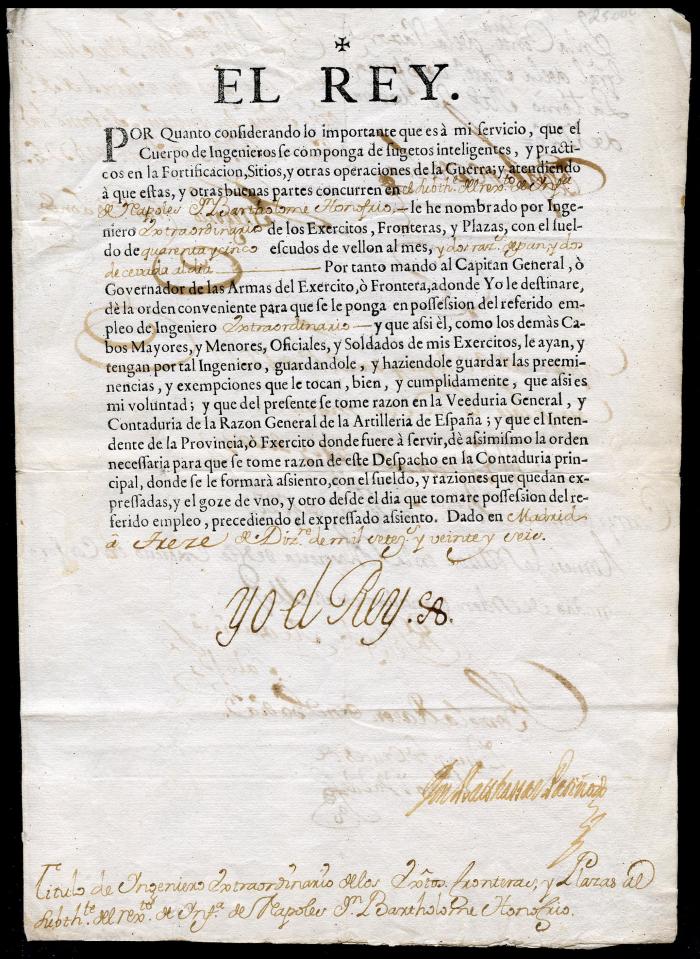 EL REY.
POR Quanto considerando lo importante que es à mi servicio, que el
Cuerpo de Ingenieros se componga de sugetos inteligentes, y practi-
cos en la Fortificacion, Sitios, y otras operaciones de la Guerra; y atendiendo
à que estas, y otras buenas partes concurren en el Subthte. del rexto. de Infa.
de Napoles Dn. Bartholome Honofrio, - le he nombrado por Inge-
niero Extraordinario de los Exercitos, Fronteras, y Plazas, con el suel-
do de quarenta y cinco escudos de vellon al mes, y dos raz.s de pan, y dos
de cevada al dia Por tanto mando al Capitan General, ò
Governador de las Armas del Exercito, ò Frontera, adonde Yo le destinare,
dè la orden conveniente para que se le ponga en possession del referido em-
pleo de Ingeniero Extraordinario - y que assi èl, como los demàs Ca-
bos Mayores, y Menores, Oficiales, y Soldados de mis Exercitos, le ayan, y
tengan por tal Ingeniero, guardandole, y haziendole guardar las preemi-
nencias, y exempciones que le tocan, bien, y cumplidamente, que assi es
mi voluntad; y que del presente se tome razon en la Veeduria General, y
Contaduria de la Razon General de la Artilleria de España; y que el Inten-
dente de la Provincia, ò Exercito donde fuere à servir, dè assimismo la orden
necessaria para que se tome razon de este Despacho en la Contaduria prin-
cipal, donde se le formarà assiento, con el sueldo, y raziones que quedan ex-
pressadas, y el goze de vno, y otro desde el dia que tomare possession del re-
ferido empleo, precediendo el expressado assiento. Dado en Madrid
à treze de Dizre. de mil setezs. y veinte y seis.
yo el Rey.
Dn Balthassar Patiño
Titulo de Ingeniero Extraordinario de los Extos. fronteras, y Plazas al
Subthte. del rexto. de Infa. de Napoles Dn. Bartholome Honofrio.